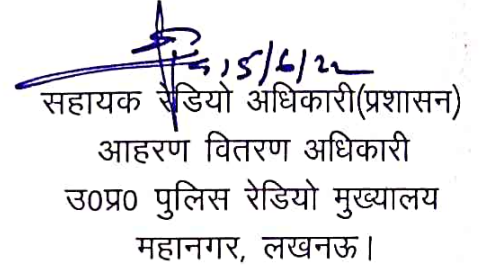 15/6/22
सहायक रेडियो अधिकारी(प्रशासन)
आहरण वितरण अधिकारी
उ0प्र0 पुलिस रेडियो मुख्यालय
महानगर, लखनऊ।